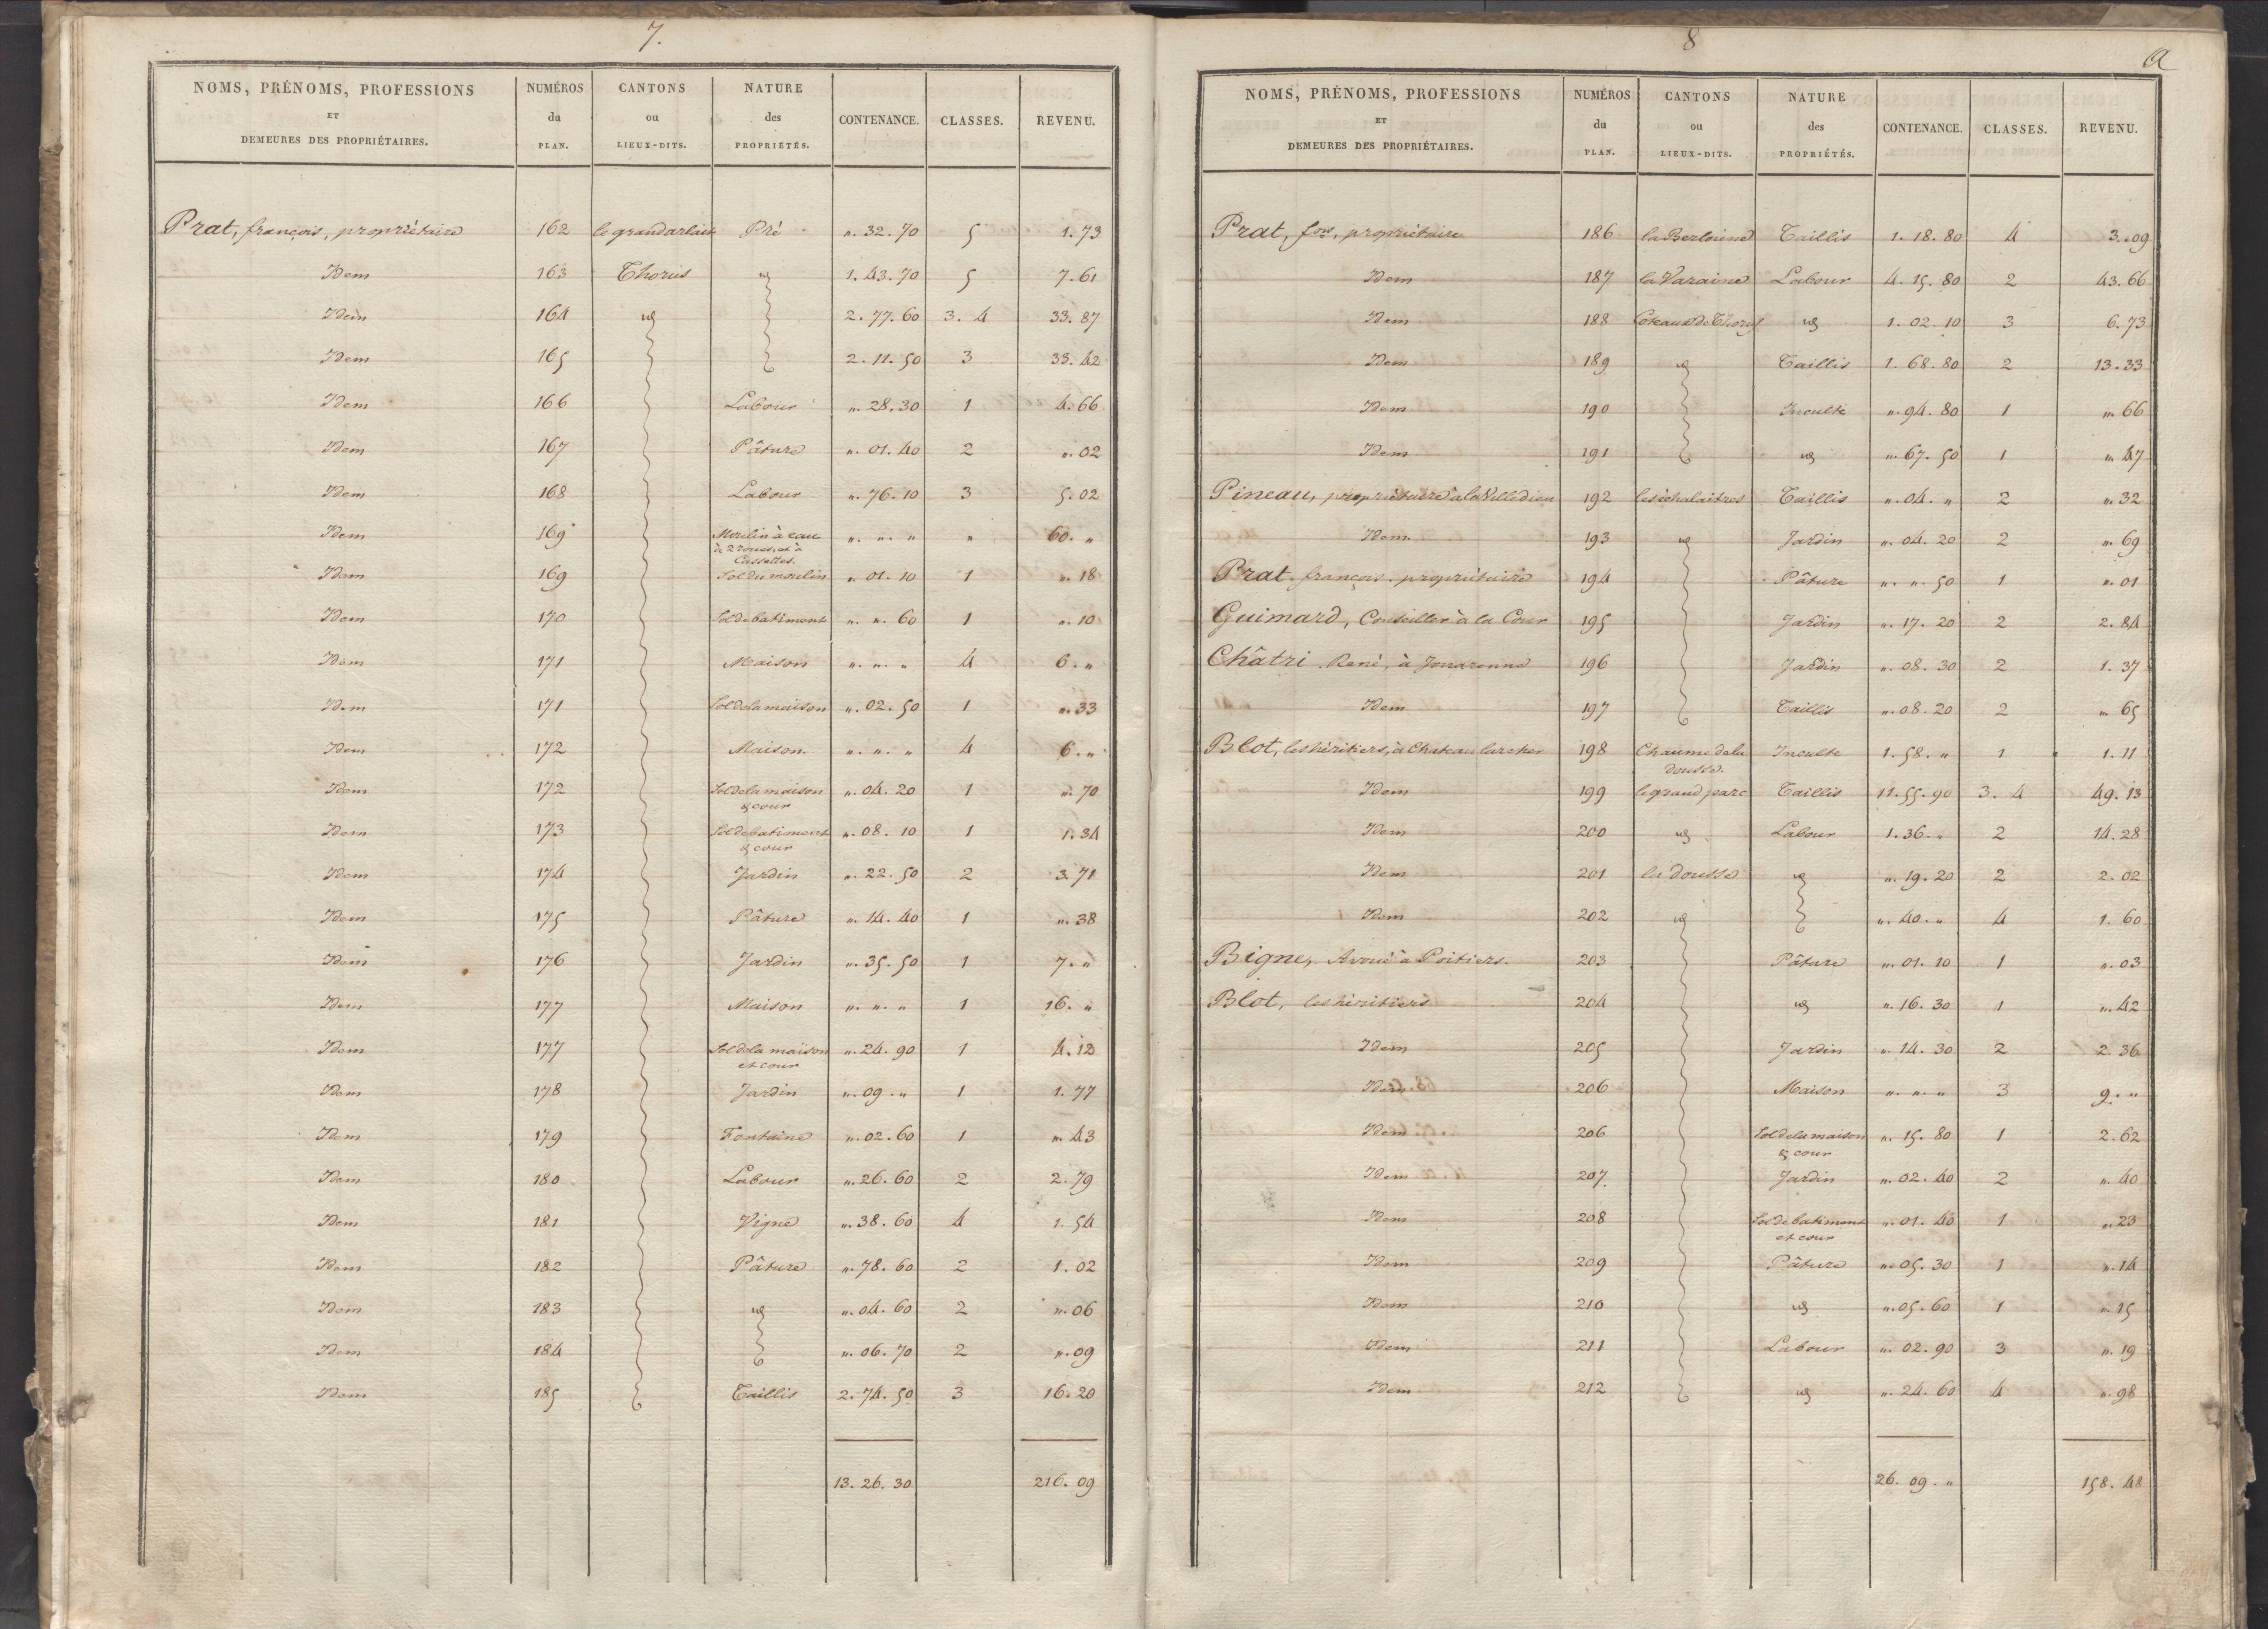 7.
NOMS, PRÉNOMS, PROFESSIONS ET DEMEURES DES PROPRIÉTAIRES. NUMÉROS du PLAN. CANTONS ou LIEUX-DITS. NATURE des PROPRIÉTÉS. CONTENANCE. CLASSES. REVENU.
Prat, françois, propriétaire 162 Pré ". 32. 70 5 1. 73
Idem 163 Thorus id 1. 43. 70 5 7. 61
Idem 164 id 2. 77. 60 3. 4 33. 87
Idem 165 2. 11. 50 3 33. 42
Idem 166 Labour ". 28. 30 1 4. 66
Idem 167 Pâture ". 01. 40 2 ". 02
Idem 168 Labour ". 76. 10 3 5. 02
Idem 169 Moulin à eau ". ". " " 60. "
à 2 roues, et à
Cassettes.
Idem 169 Sol du moulin ". 01. 10 1 ". 18
Idem 170 Sol de batiment ". ". 60 1 ". 10
Idem 171 Maison ". ". " 4 6. "
Idem 171 Sol de la maison ". 02. 50 1 ". 33
Idem 172 Maison. ". ". " 4 6. "
Idem 172 Sol de la maison ". 04. 20 1 ". 70
& cour
Idem 173 Sol de batiment ". 08. 10 1 1. 34
& cour
Idem 174 Jardin ". 22. 50 2 3. 71
Idem 175 Pâture ". 14. 40 1 ". 38
Idem 176 Jardin ". 35. 50 1 7. "
Idem 177 Maison ". ". " 1 16. "
Idem 177 Sol de la maison ". 24. 90 1 4. 12
et cour
Idem 178 Jardin ". 09. " 1 1. 77
Idem 179 Fontaine ". 02. 60 1 ". 43
Idem 180 Labour ". 26. 60 2 2. 79
Idem 181 Vigne ". 38. 60 4 1. 54
Idem 182 Pâture ". 78. 60 2 1. 02
Idem 183 id ". 04. 60 2 ". 06
Idem 184 ". 06. 70 2 ". 09
Idem 185 Taillis 2. 74. 50 3 16. 20
13. 26. 30 216. 09
8
a
NOMS, PRÉNOMS, PROFESSIONS ET DEMEURES DES PROPRIÉTAIRES. NUMÉROS du PLAN. CANTONS ou LIEUX-DITS. NATURE des PROPRIÉTÉS. CONTENANCE. CLASSES. REVENU.
Prat, fois, propriétaire 186 Taillis 1. 18. 80 4 3. 09
Idem 187 la Varaine Labour 4. 15. 80 2 43. 66
Idem 188 Coteaux de Thorus id 1. 02. 10 3 6. 73
Idem 189 id Taillis 1. 68. 80 2 13. 33
Idem 190 Inculte ". 94. 80 1 ". 66
Idem 191 id ". 67. 50 1 ". 47
Pineau, propriétaire à la Villedieu 192 les échalaitres Taillis ". 04. " 2 ". 32
Idem 193 id Jardin ". 04. 20 2 ". 69
Prat, françois, propriétaire 194 Pâture ". ". 50 1 ". 01
Guimard, Conseiller à la Cour 195 Jardin ". 17. 20 2 2. 84
Châtri, René, à Jouarenne 196 Jardin ". 08. 30 2 1. 37
Idem 197 Taillis ". 08. 20 2 ". 65
Blot, les héritiers, à Chateau larcher 198 Chaume de la Inculte 1. 58. " 1 1. 11
dousse.
Idem 199 le grand parc Taillis 11. 55. 90 3. 4 49. 13
Idem 200 id Labour 1. 36. " 2 14. 28
Idem 201 la dousse id ". 19. 20 2 2. 02
Idem 202 id ". 40. " 4 1. 60
Bigne, Avoué à Poitiers. 203 Pâture ". 01. 10 1 ". 03
Blot, les héritiers 204 id ". 16. 30 1 ". 42
Idem 205 Jardin ". 14. 30 2 2. 36
Idem 206 Maison ". ". " 3 9. "
Idem 206 Sol de la maison ". 15. 80 1 2. 62
& cour
Idem 207. Jardin ". 02. 40 2 ". 40
Idem 208 Sol de batiment ". 01. 40 1 ". 23
et cour
Idem 209 Pâture ". 05. 30 1 ". 14
Idem 210 id ". 05. 60 1 ". 15
Idem 211 Labour ". 02. 90 3 ". 19
Idem 212 id ". 24. 60 4 ". 98
26. 09. " 158. 48